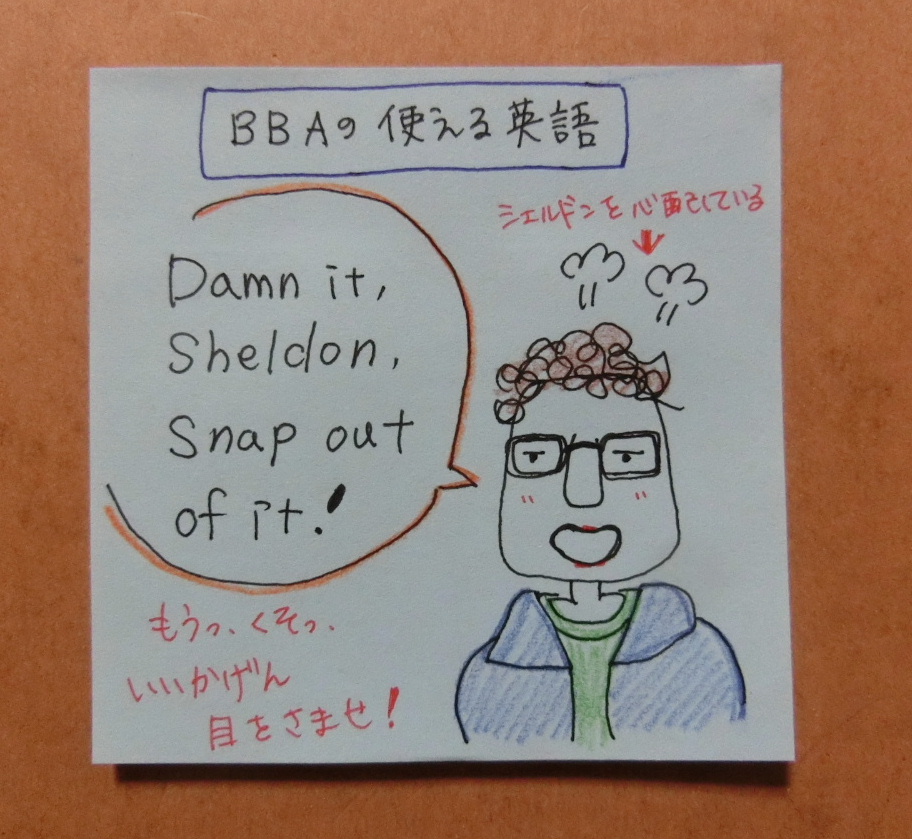 BBAの使える英語
シェルドンを心配している
Damn it,
Sheldon,
Snap out
of it!
もうっ、くそっ、
いいかげん
目をさませ!